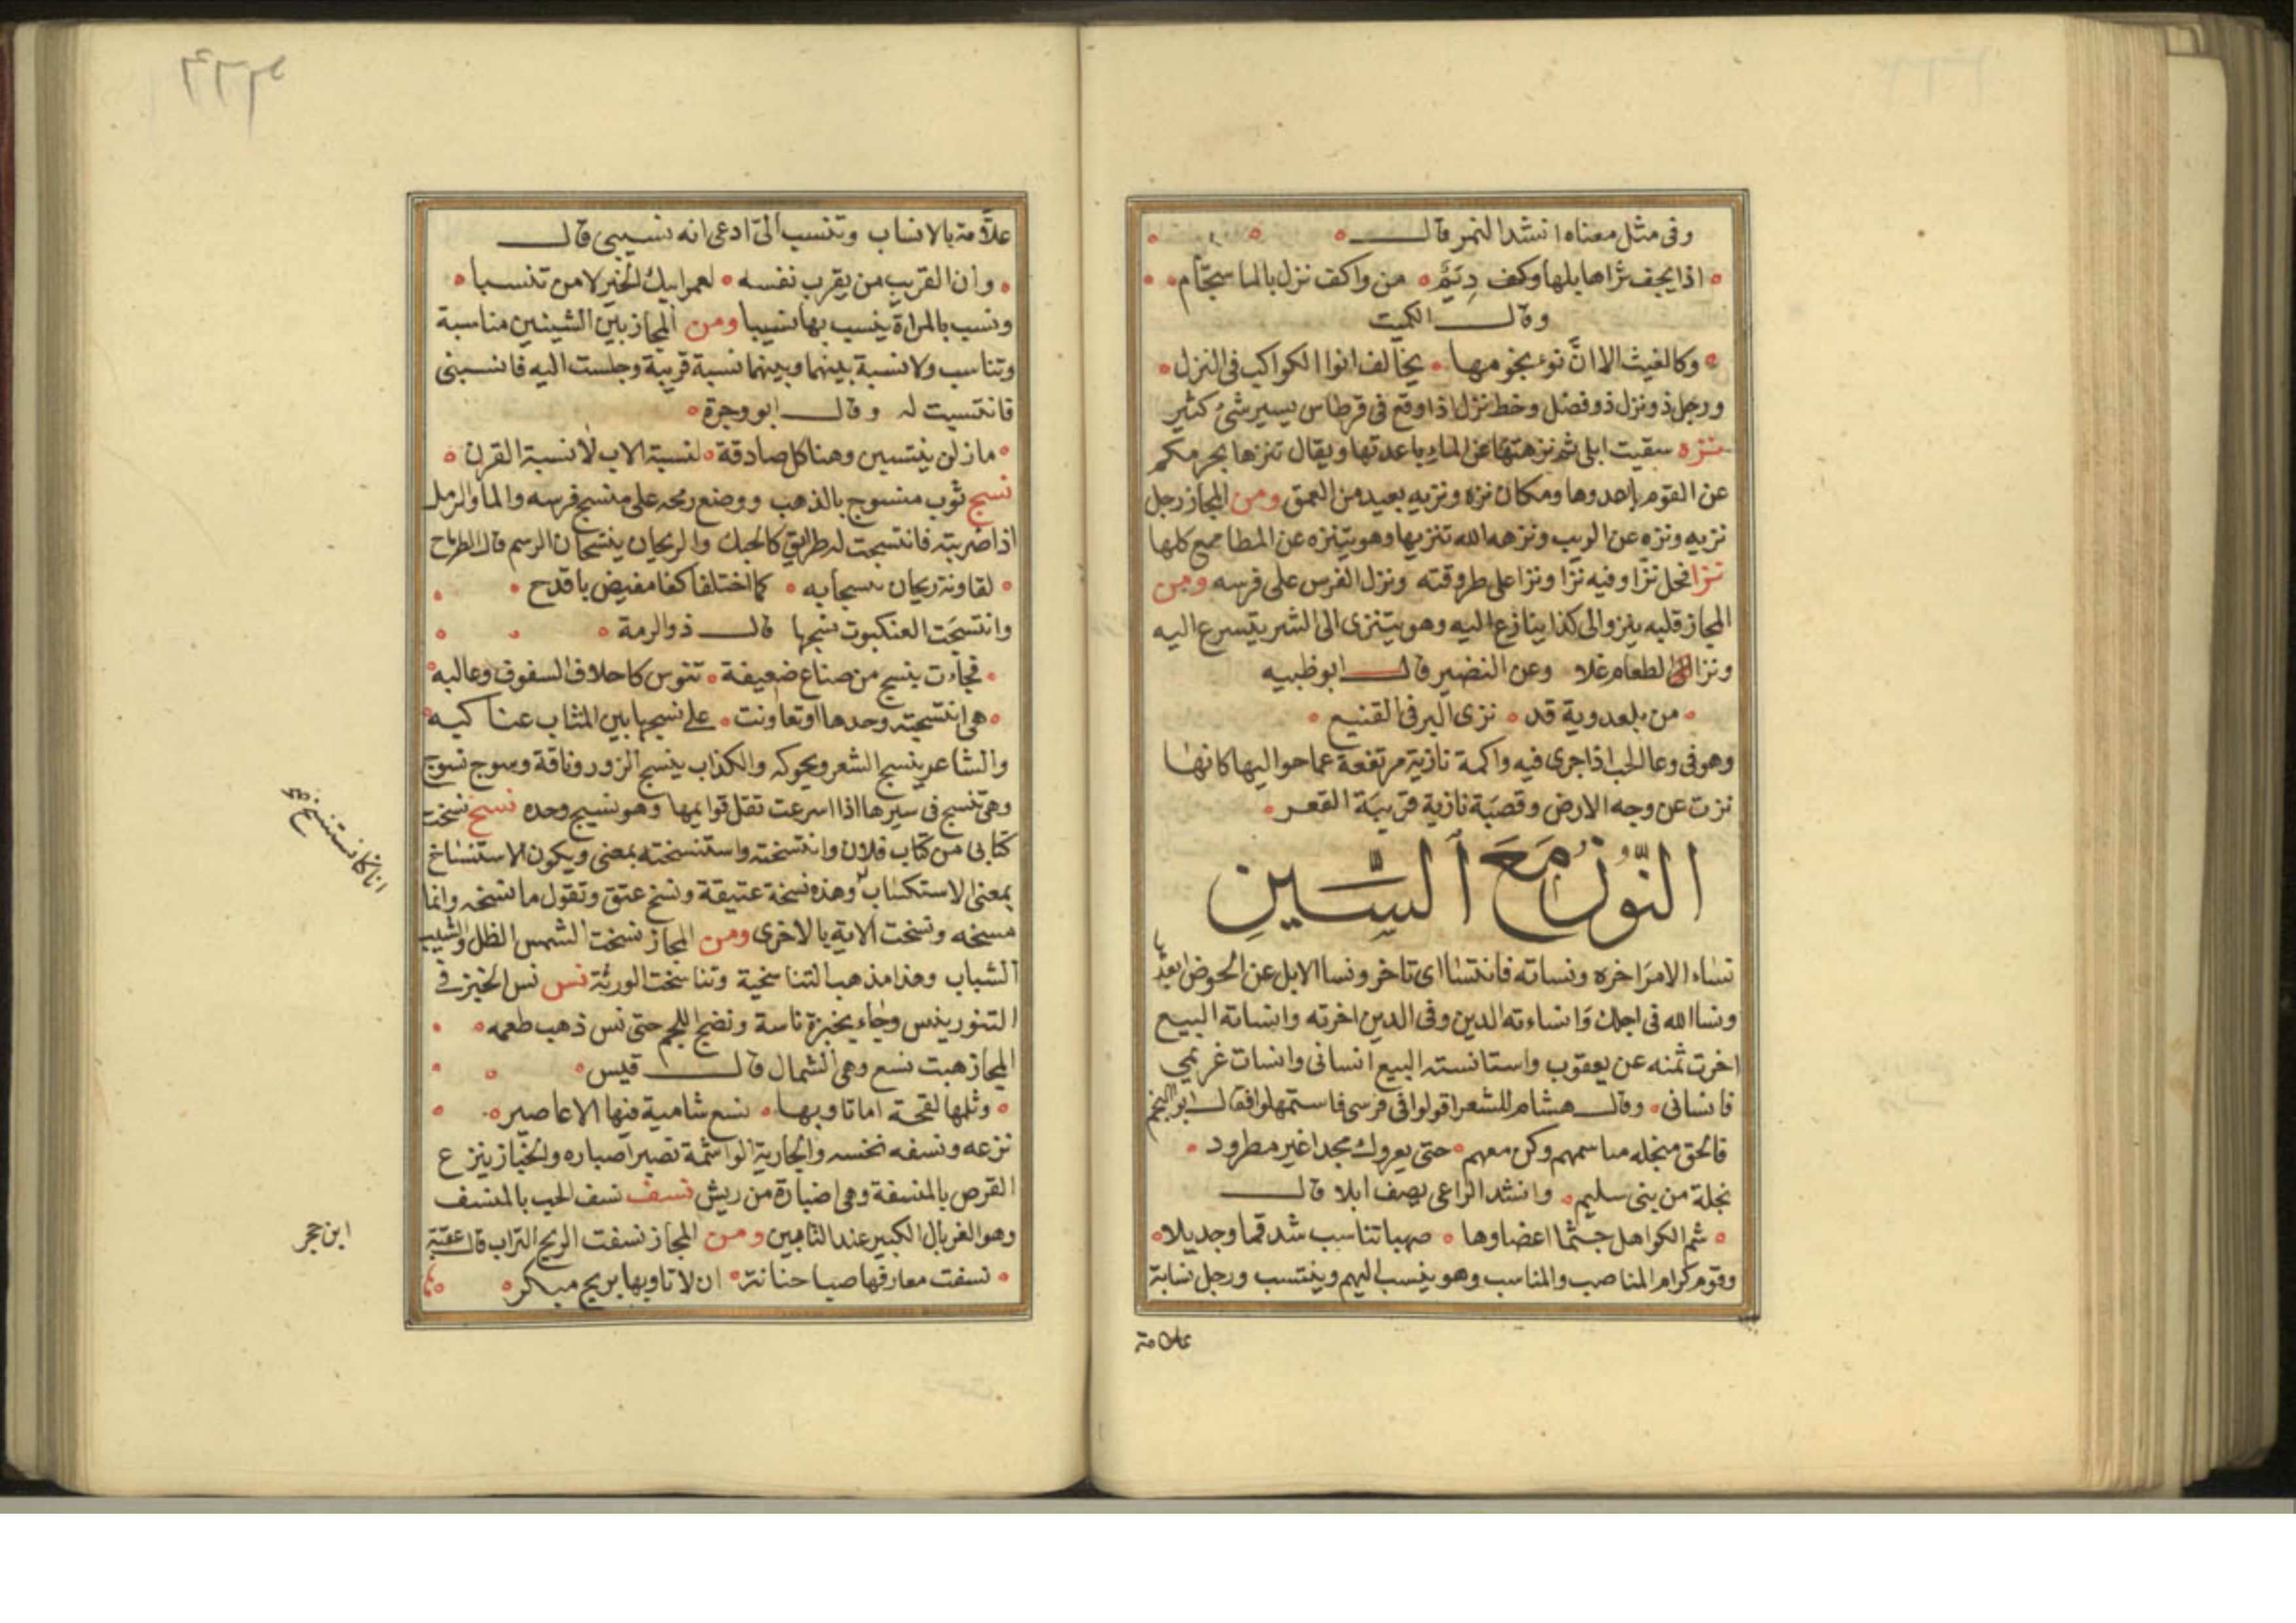 وفى مثل معناه انشد النمر قال
اذا يجف ثراها بلها وكف ديم من واكف نزل بالما سجام
وقال الكميت
وكالغيث الا ان نوء نجومها يخالف انوا الكواكب فى النزل
ورجل ذو نزل ذو فضل وخط نزل اذا وقع فى قرطاس يسير شئ كثير
نزه سقيت ابلى ثم نزهتها عن الماء باعدتها ويقال تنزها بحرمكم
عن القوم باعدوها ومكان نزه ونزيه بعيد من العمق ومن المجاز رجل
نزيه ونزه عن الريب ونزهه الله تنزيها وهو يتنزه عن المطامع كلها
نزا فحل نزا وفيه نزا ونزا على طروقته ونزل الفرس على فرسه ومن
المجاز قلبه ينزو الى كذا ينازع اليه وهو يتنزى الى الشر يتسرع اليه
ونزا الطعام غلا وعن النضير قال ابو ظبيه
من بلعدوية قد نزى البر فى القنيع
وهو فى وعا الحب اذا جرى فيه واكمة نازية مرتفعة عما حواليها كانها
نزت عن وجه الارض وقصبة نازية قريبة القعر
النُّونُ مَعَ السِّينِ
نساء الامر اخره ونساته فانتسا اى تاخر ونسا الابل عن الحوض ابعد
ونسا الله فى اجلك وانساءته الدين وفى الدين اخرته وانساته البيع
اخرت ثمنه عن يعقوب واستانسته البيع انسانى وانسات غريمي
فانسانى وقال هشام للشعرا قولوا فى فرسى فاستمهلوا فقال ابو النجم
فالحق منجله مباسمهم وكن معهم حتى يعروك مجدا غير مطرود
نجلة من بنى سليم وانشد الراعى يصف ابلا قال
شم الكواهل جنثا اعضاوها صهبا تناسب شدقما وجديلا
وقوم كرام المناصب والمناسب وهو ينسب اليهم وينتسب ورجل نسابة
علامة
علَّامة بالانساب وتنسب الىّ ادعى انه نسيبى قال
وان القريب من يقرب نفسه لعمر ابيك الخير لا من تنسبا
ونسب بالمراة ينسب بها نسيبا ومن المجاز بين الشيئين مناسبة
وتناسب ولا نسبة بينهما وبينهما نسبة قريبة وجلست اليه فانسبنى
فانتسبت له وقال ابو وجزة
مازلن ينتسبن وهنا كل صادقة لنسبة الاب لا نسبة القرن
نسج ثوب منسوج بالذهب ووضع رمحه على منسج فرسه والما والرمل
اذا ضربته فانتسجت له طرايق كالحبك والريحان ينسجان الرسم قال الطرماح
لقاونة ريحان نسجا به كما اختلفا كفا مفيض باقدح
وانتسجت العنكبوت نسجها قال ذو الرمة
فجاءت بنسج من صناع ضعيفة تنوس كاخلاق السفوف وعالبه
هى انتسجته وحدها او تعاونت على نسجها بين المثاب عناكبه
والشاعر ينسج الشعر ويحوكه والكذاب ينسج الزور وناقة وسوج نسوج
وهى تنسج فى سيرها اذا اسرعت نقل قوايمها وهو نسيج وحده نسخ نسخت
كتابى من كتاب فلان وانتسخته واستنسخته بمعنى ويكون الاستنساخ
بمعنى الاستكتاب وهذه نسخة عتيقة ونسخ عتق وتقول ما نسخه وانما
مسخه ونسخت الاية بالاخرى ومن المجاز نسخت الشمس الظل والشيب
الشباب وهذا مذهب التناسخية وتناسخت الورثة نس نس الخبز فى
التنور ينس وجاء بخبزة ناسة ونضج اللحم حتى نس ذهب طعمه
المجاز هبت نسع وهى الشمال قال قيس
وثلها لقحة اما تاوبها نسع شامية فيها الاعاصير
نزعه ونسفه نخسه والجارية الواشمة تصير اصباره والخباز ينزع
القرص بالمنسفة وهى اضبارة من ريش نسف نسف الحب بالمنسف
وهو الغربال الكبير عند الثامين ومن المجاز نسفت الريح التراب قال عقبة
نسفت معارفها صبا حنانة ان لا تاوبها بريح مبكر
انا كنا نستنسخ
ابن حجر